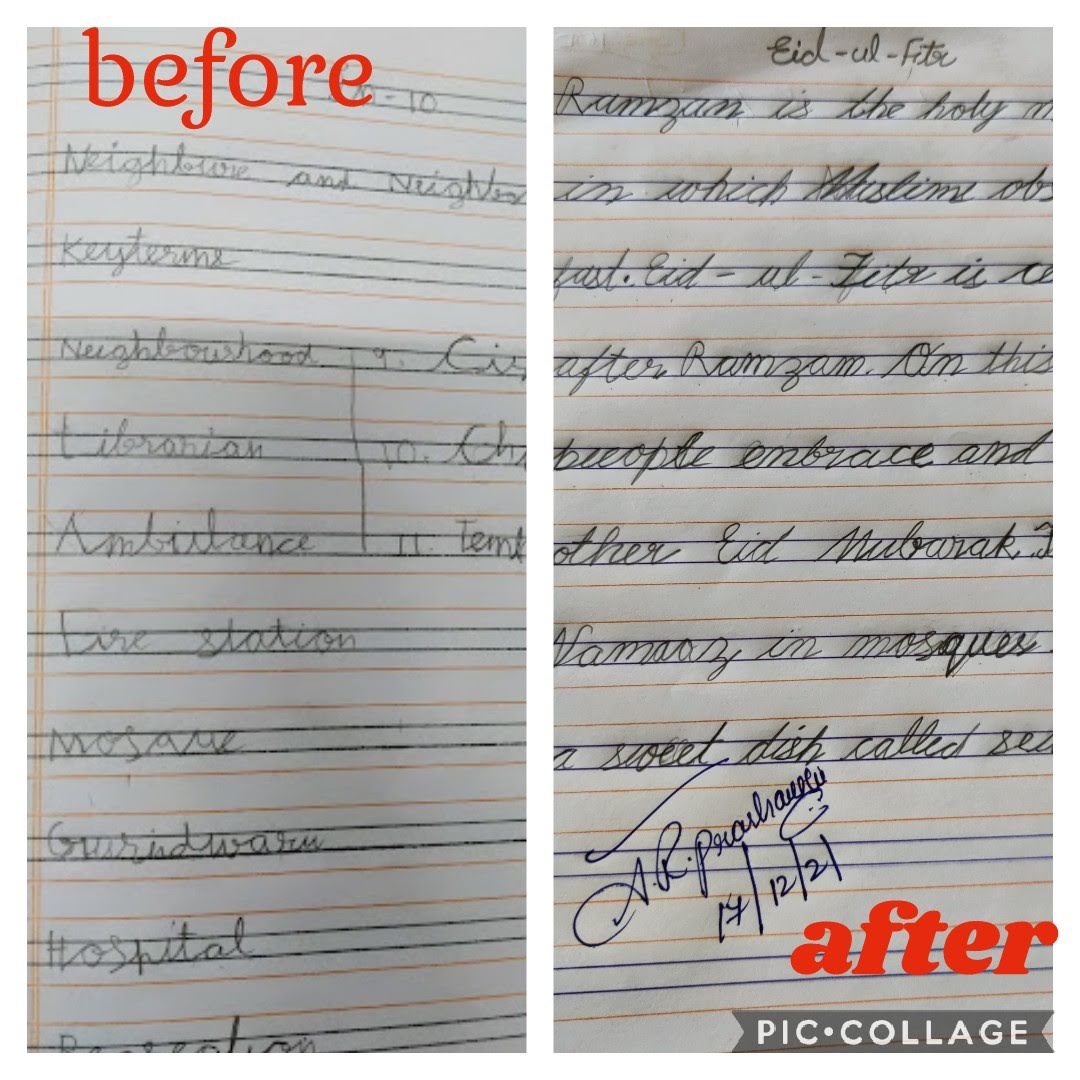 before
-10
Neighbure and Neighbo
Keyterms
Neighbourhood 9. Cir
Librarian 10. Ch
Ambulance 11. Temt
Fire station
Mosque
Gurudwara
Hospital
Recreation
Eid-ul-Fitr
Ramzan is the holy m
in which Muslims obs
fast. Eid-ul-Fitr is ce
after Ramzam. On this
peeople embrace and
other Eid Mubarak.
Namaaz in mosques
a sweet dish called sev
17/12/21
after
PIC•COLLAGE